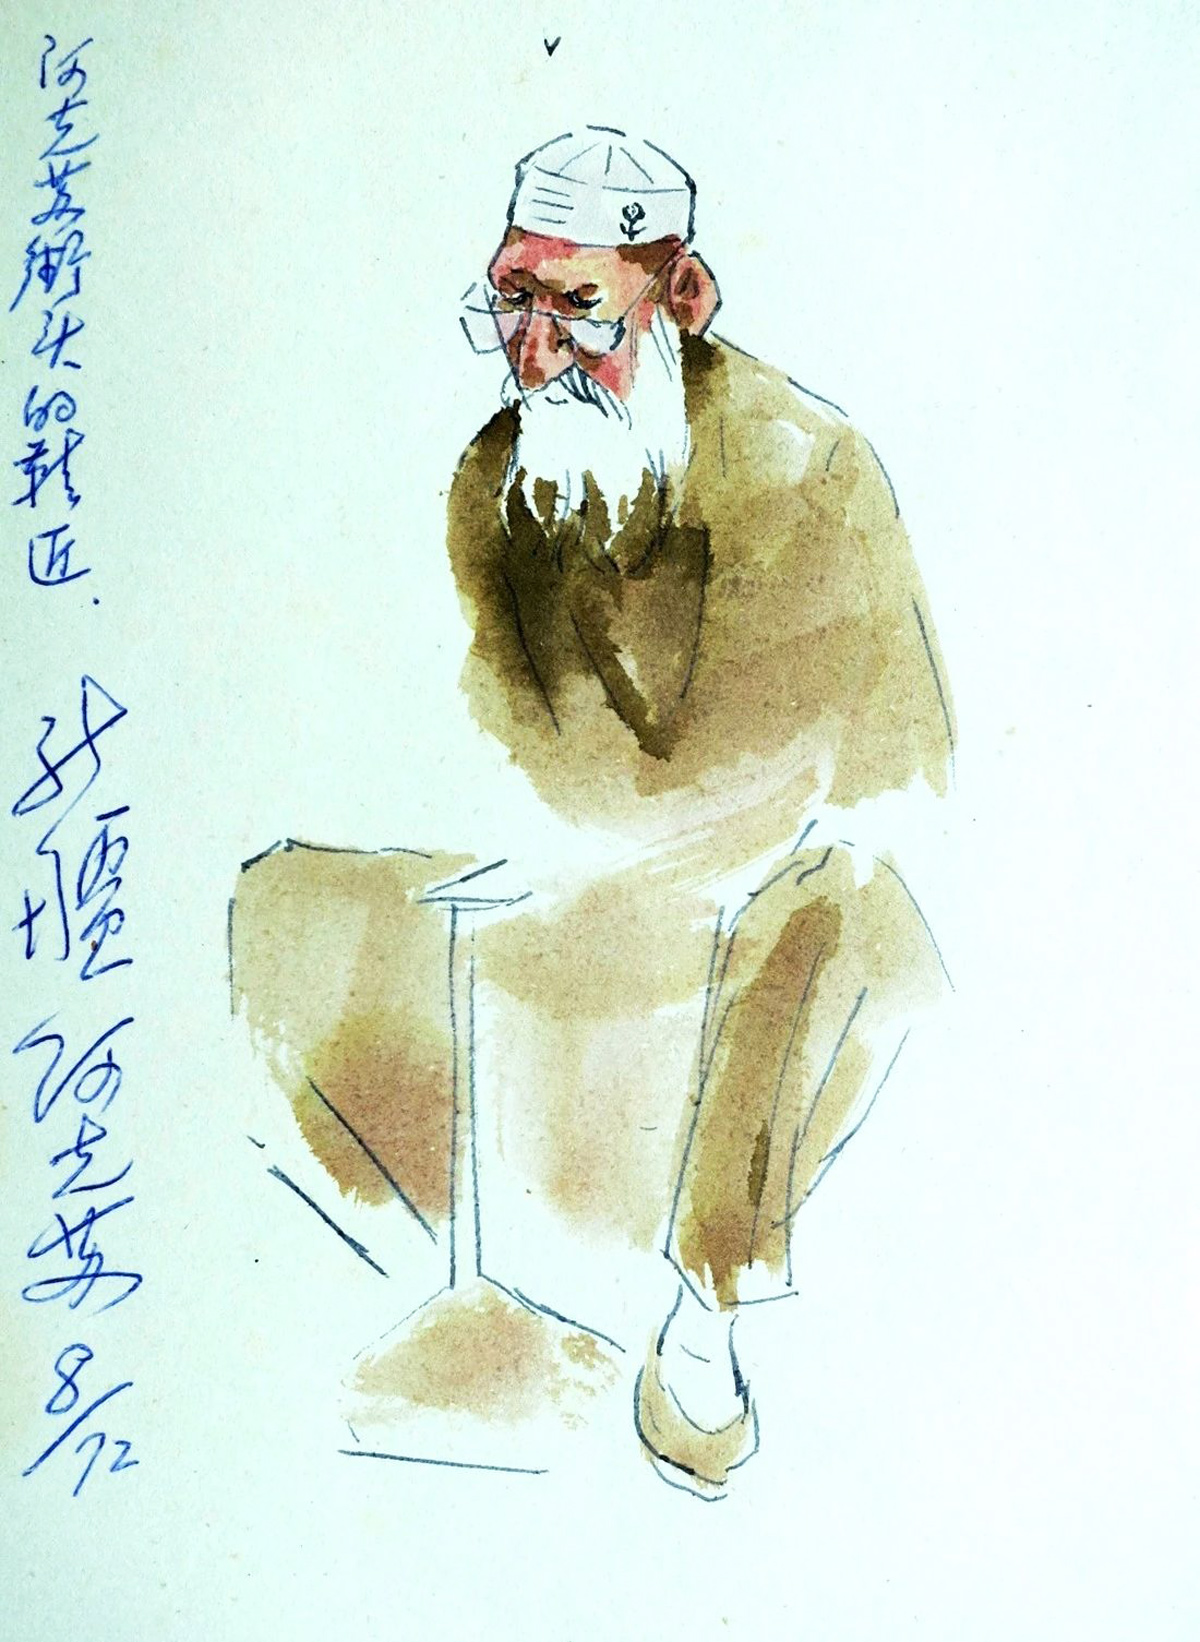 阿克苏街头的鞋匠.
新疆 阿克苏 8/72